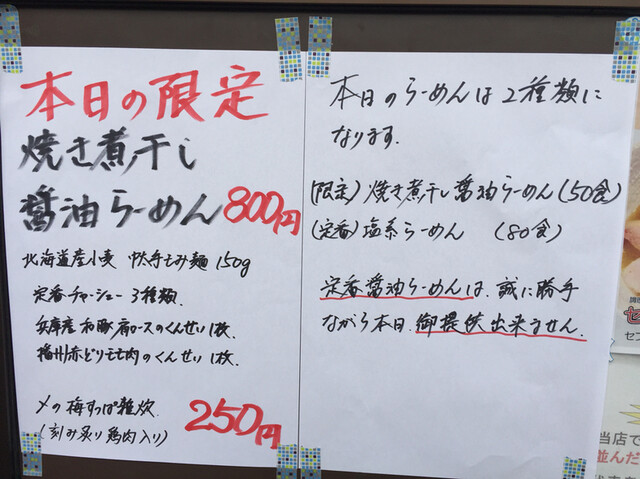 本日の限定
焼き煮干し
醤油らーめん 800円
北海道産小麦 中太手もみ麺 150g
定番チャーシュー 3種類
兵庫産和豚肩ロースのくんせい1枚
播州赤どりモモ肉のくんせい1枚
〆の梅すっぱ雑炊 250円
(刻み炙り鶏肉入り)
本日のらーめんは2種類に
なります.
(限定) 焼き煮干し醤油らーめん (50食)
(定番) 塩系らーめん (80食)
定番醤油らーめんは、誠に勝手
ながら本日、御提供出来ません.
当店で
並んだ